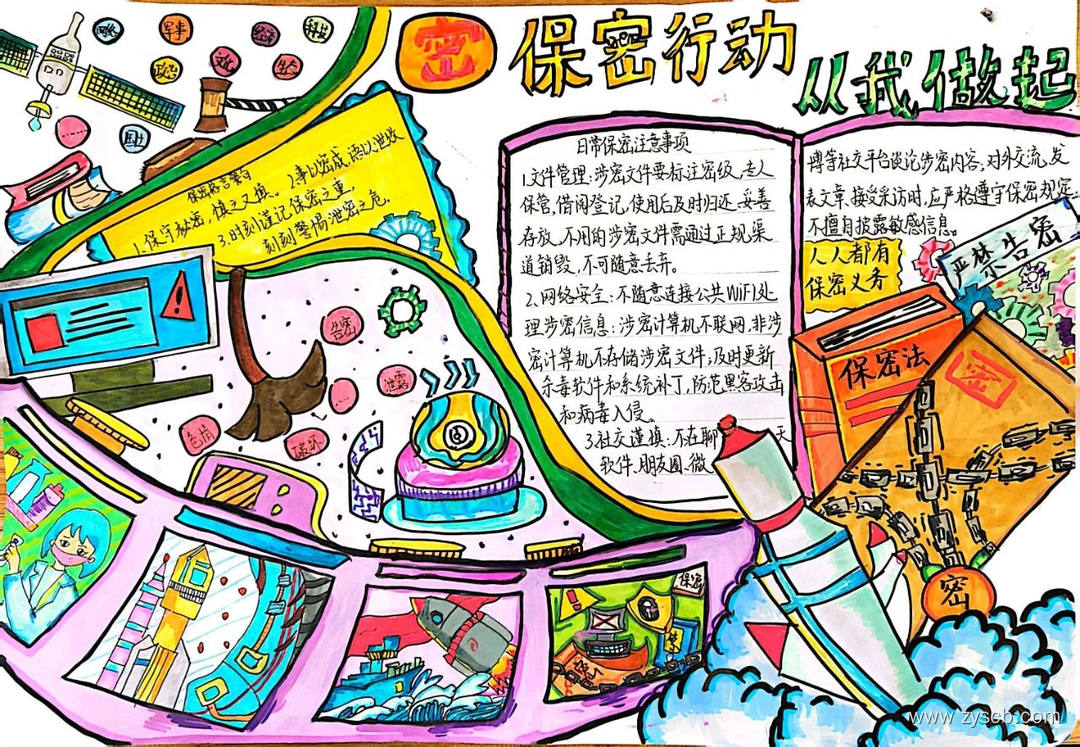 密
保密行动
从我做起
网络
军事
经济
科技
政治
文化
生态
国土
保密名言警句
1.保守秘密,慎之又慎。2.事以密成,语以泄败
3.时刻谨记保密之重,
刻刻警惕泄密之危。
日常保密注意事项
1.文件管理:涉密文件要标注密级,专人
保管,借阅登记,使用后及时归还,妥善
存放,不用的涉密文件需通过正规渠
道销毁,不可随意丢弃。
2.网络安全:不随意连接公共WiFi处
理涉密信息;涉密计算机不联网,非涉
密计算机不存储涉密文件,及时更新
杀毒软件和系统补丁,防范黑客攻击
和病毒入侵。
3.社交谨慎:不在聊天
软件、朋友圈、微
博等社交平台谈论涉密内容,对外交流、发
表文章、接受采访时,应严格遵守保密规定,
不擅自披露敏感信息。
人人都有
保密义务
严禁告密
保密法
密
告密
泄露
……
色情
破坏
保密
密
www.zyscb.com